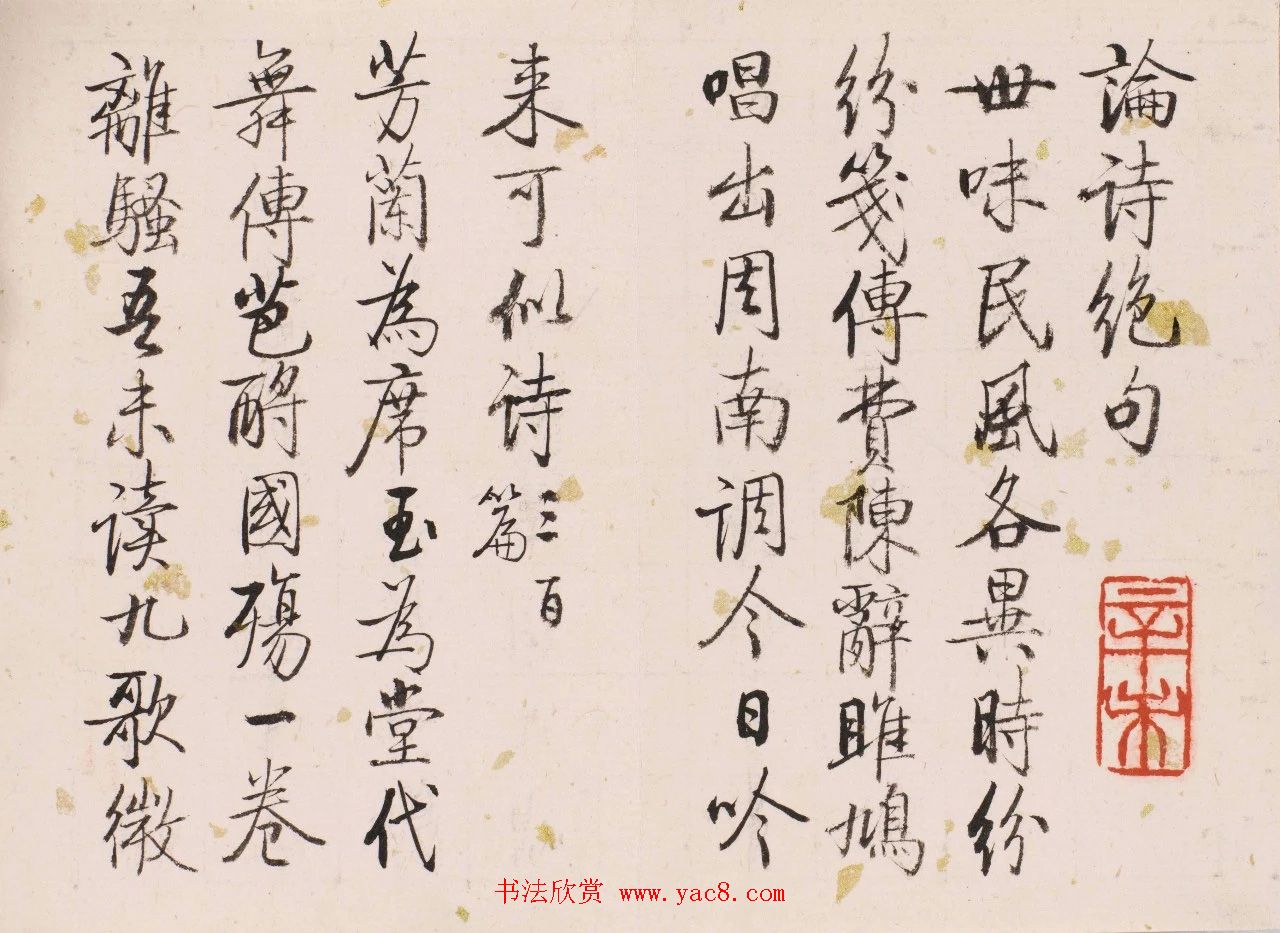 論诗絶句
世味民風各異時紛
紛箋傳費陳辭雎鳩
唱出周南调今日吟
来可似诗三百
篇
芳蘭為席玉為堂代
舞傳芭酹國殤一卷
離騷吾未读九歌微
辛未
书法欣赏 www.yac8.com